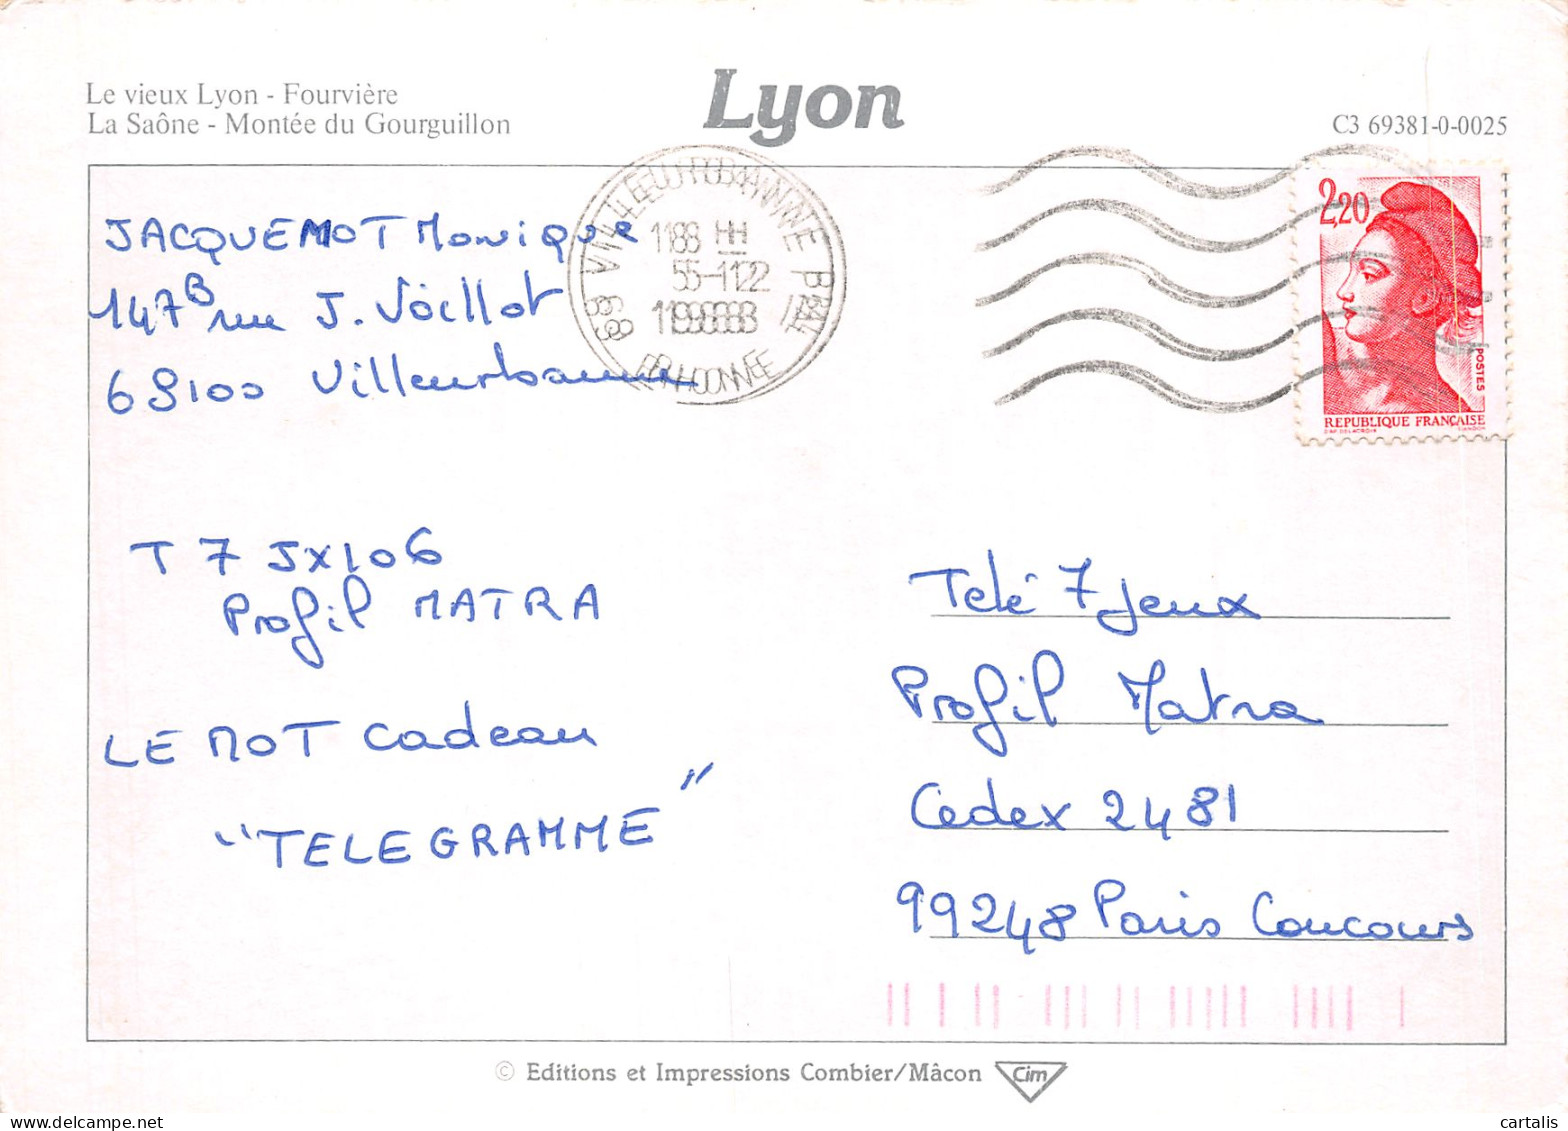 Le vieux Lyon - Fourvière
La Saône - Montée du Gourguillon
Lyon
C3 69381-0-0025
JACQUEMOT Monique
147B rue J. Voillot
69100 Villeurbanne
69 VILLEURBANNE PPAL
RHONE
2,20
POSTES
REPUBLIQUE FRANÇAISE
D'AP. DELACROIX
GANDON
T 7 JX106
Profil MATRA
LE MOT Cadeau
"TELEGRAMME"
Télé 7 Jeux
Profil Matra
Cedex 2481
99248 Paris Concours
© Editions et Impressions Combier/Mâcon
Cim
cartalis